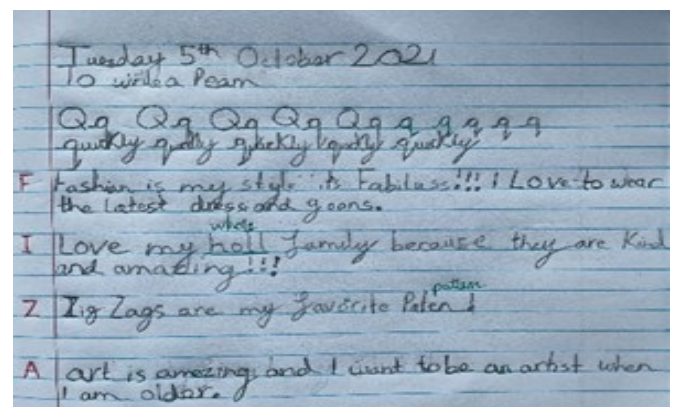 Tuesday 5th October 2021
To write a Peam
Qq Qq Qq Qq Qq q q q q q
quickly quickly quickly quickly quickly
F Fashion is my style its Fabiluss!!! I Love to wear
the Latest dress and goons.
whole
I Love my holl family because they are Kind
and amazing!!!
pattern
Z Zig Zags are my favorite Paten!
A art is amezing and I want to be an artist when
I am oldor.